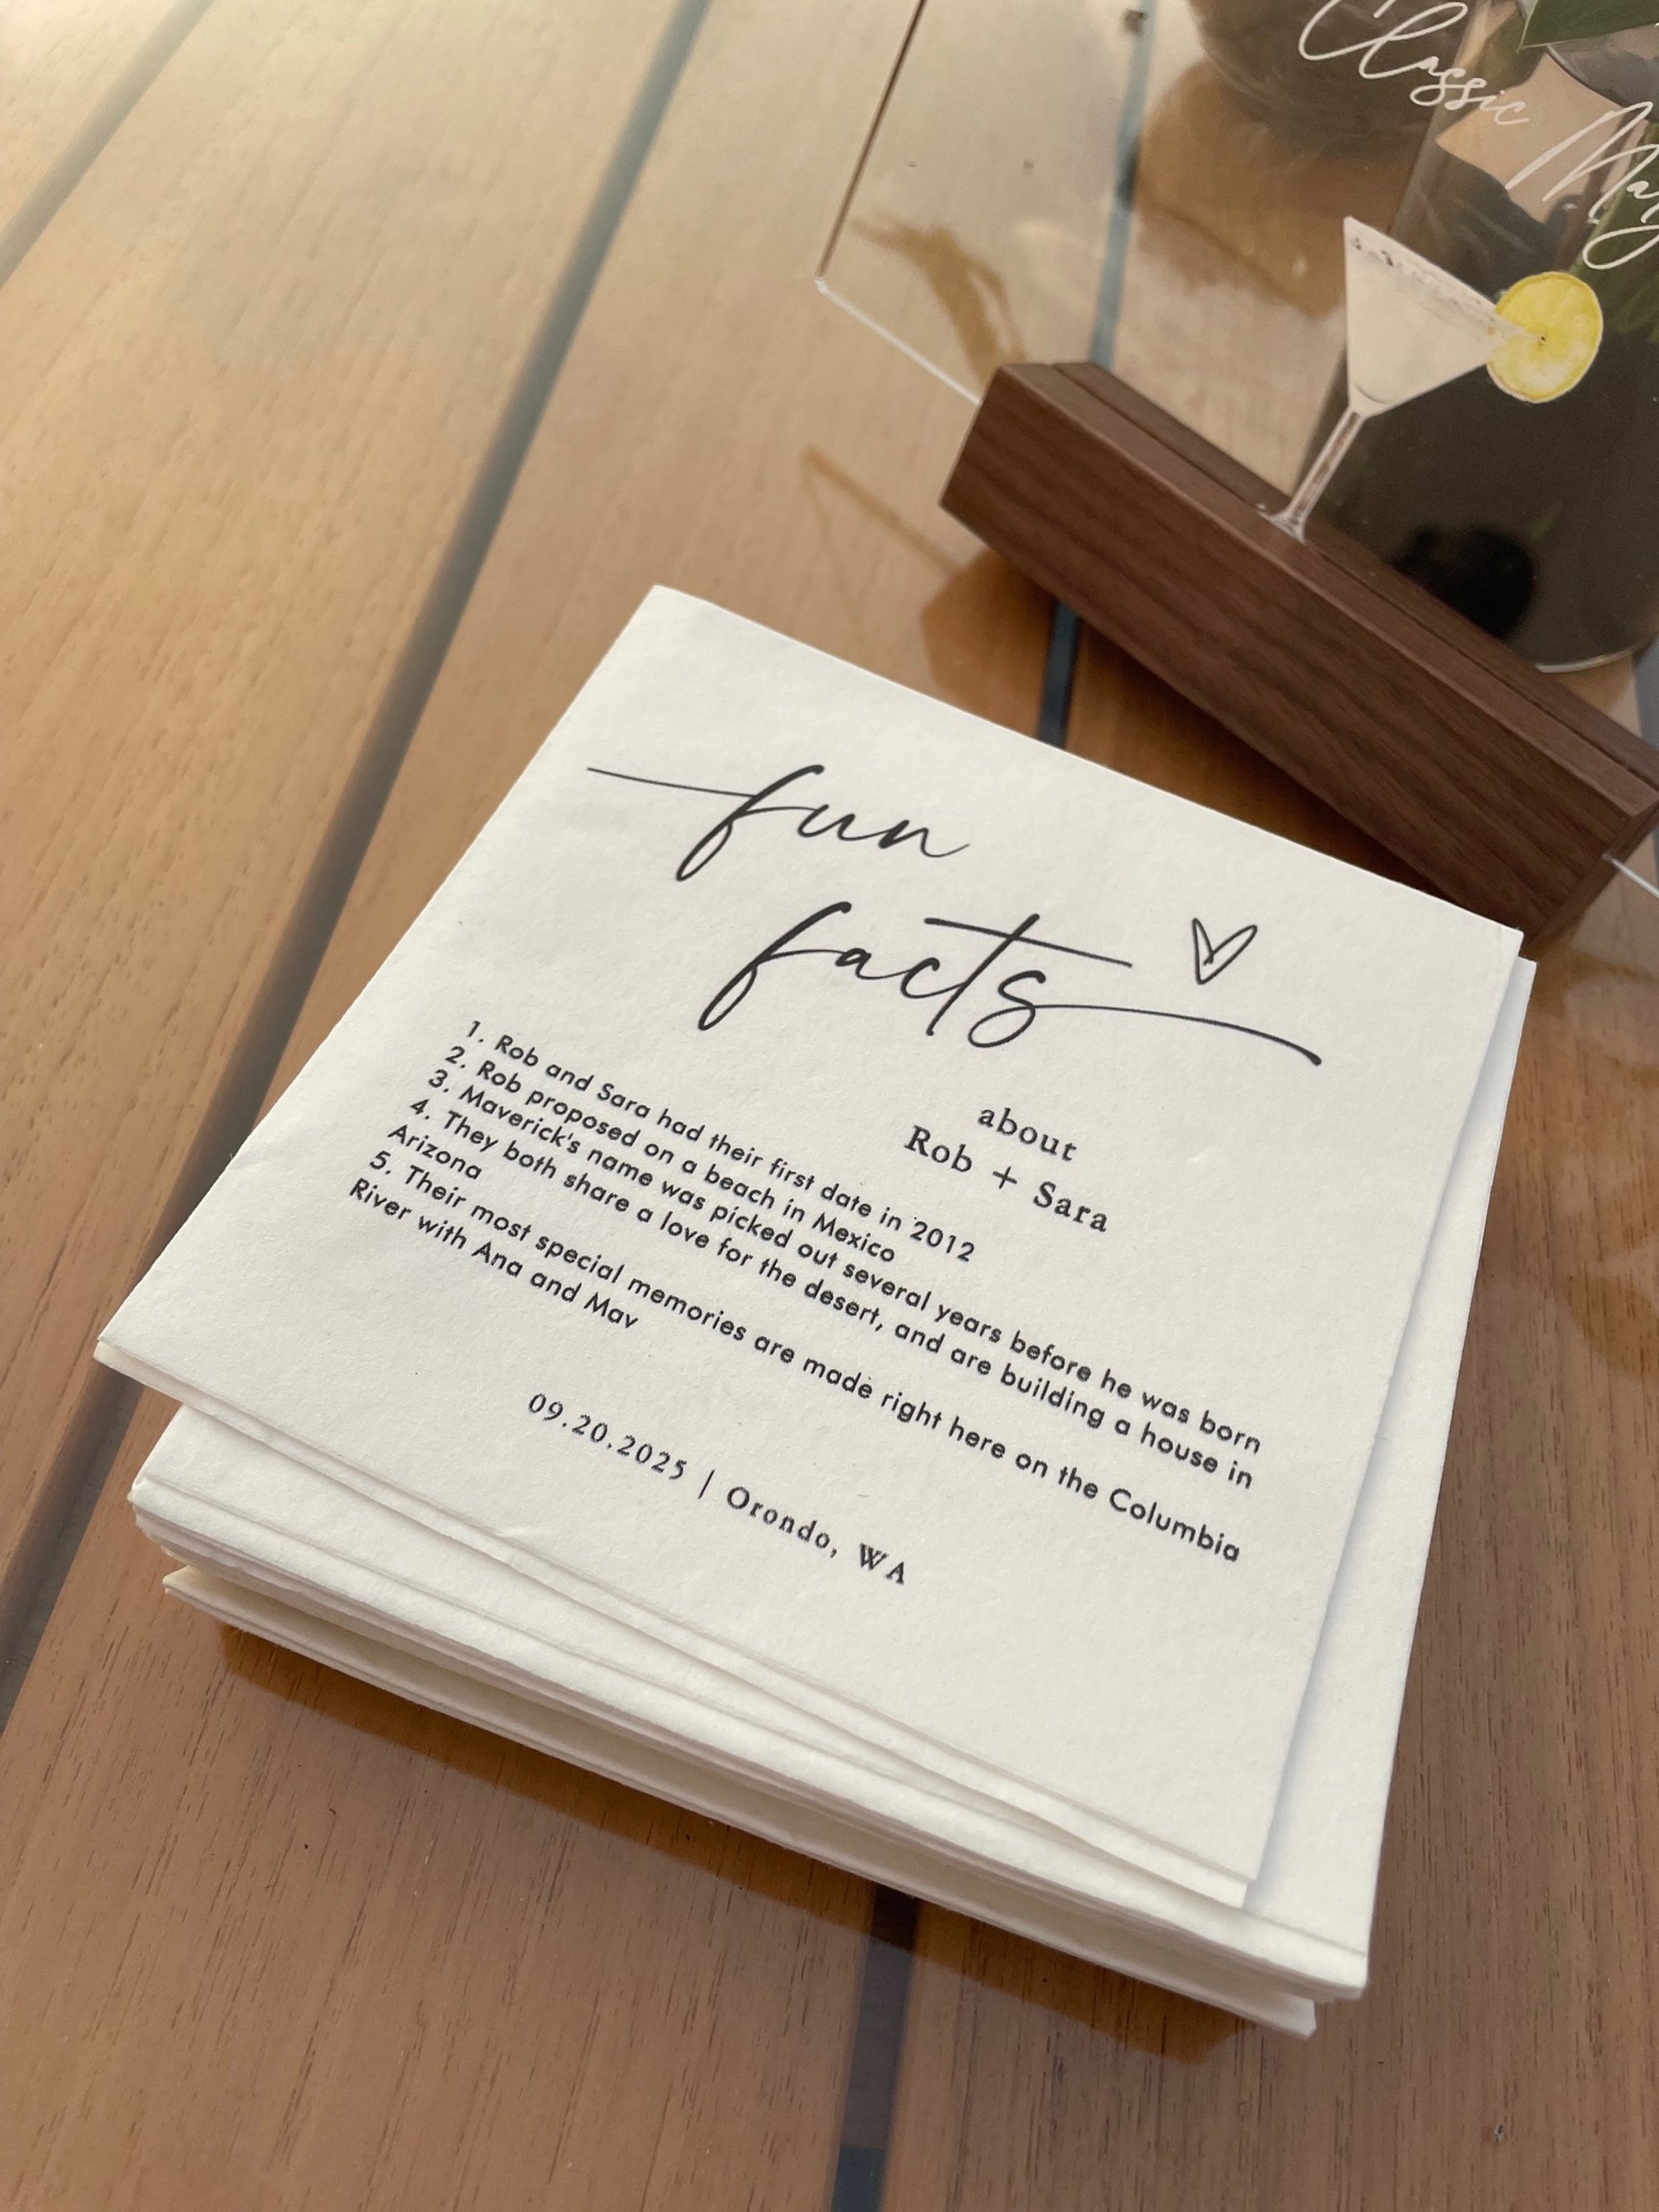 Classic
fun
facts
about
Rob + Sara
1. Rob and Sara had their first date in 2012
2. Rob proposed on a beach in Mexico
3. Maverick's name was picked out several years before he was born
4. They both share a love for the desert, and are building a house in
Arizona
5. Their most special memories are made right here on the Columbia
River with Ana and Mav
09.20.2025 | Orondo, WA